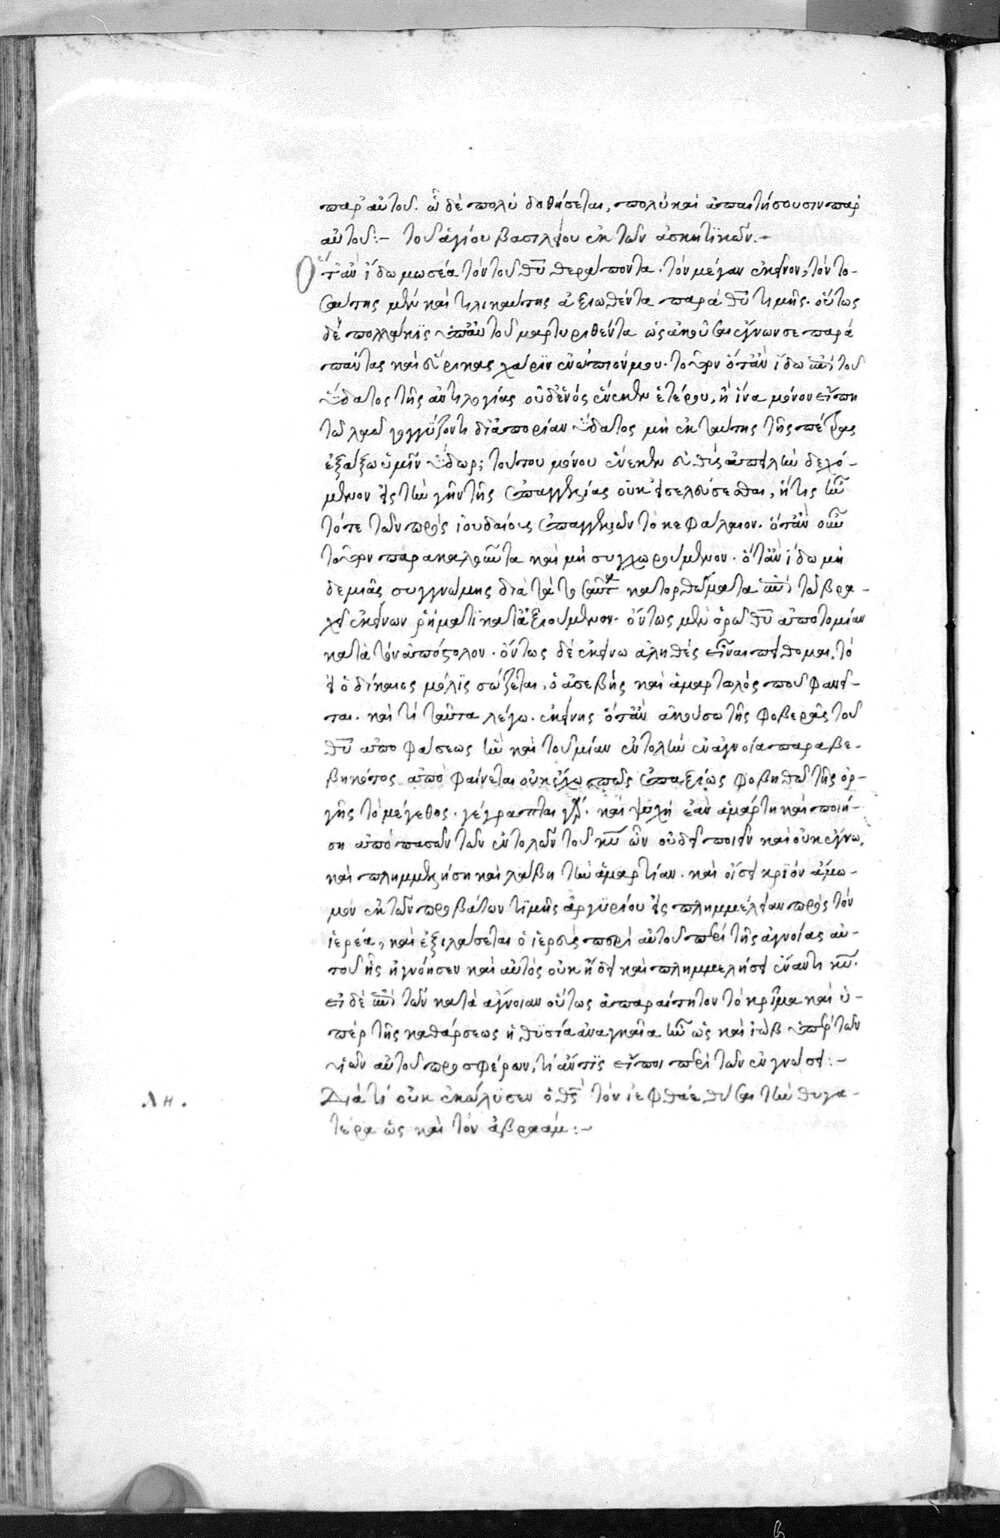 παρ' αὐτοῦ. ὧ δὲ πολὺ δοθήσεται, πολὺ καὶ ἀπαιτήσουσιν παρ'
αὐτοῦ:- τοῦ ἁγίου βασιλείου ἐκ τῶν ἀσκητικῶν.-
Ὅταν ἴδω μωσέα τὸν τοῦ θῦ θεράποντα. τὸν μέγαν ἐκεῖνον, τὸν το-
σαύτης μὲν καὶ τηλικαύτης ἀξιωθέντα παρὰ θῦ τιμῆς. οὕτως
δὲ πολλάκις ὑπ' αὐτοῦ μαρτυρηθέντα ὡς ἀκοῦσαι ἔγνων σε παρὰ
πάντας καὶ εὕρηκας χάριν ἐνώπιόν μου. τοῦτον ὅταν ἴδω ἐπὶ τοῦ
ὕδατος τῆς ἀντιλογίας οὐδενὸς ἕνεκεν ἑτέρου, ἢ ἵνα μόνον εἴπη
τῶ λαῶ γογγύζοντι δι' ἀπορίαν ὕδατος μὴ ἐκ ταύτης τῆς πέτρας
ἐξάξω ὑμῖν ὕδωρ; τούτου μόνου ἕνεκεν εὐθὺς ἀπειλὴν δεχό-
μενον εἰς τὴν γῆν τῆς ἐπαγγελίας οὐκ εἰσελεύσεσθαι, ἥτις ἦν
τότε τῶν πρὸς ἰουδαίους ἐπαγγελιῶν τὸ κεφάλαιον. ὅταν οὖν
τοῦτον παρακαλοῦντα καὶ μὴ συγχωρούμενον. ὅταν ἴδω μη
δεμιᾶς συγγνώμης διὰ τὰ τοσαῦτα κατορθώματα ἐπὶ τῶ βρα-
χεῖ ἐκείνων ῥήματι καταξιούμενον. ὄντως μὲν ὁρῶ θῦ ἀποτομίαν
κατὰ τὸν ἀπόστολον. ὄντως δὲ ἐκεῖνο ἀληθὲς εἶναι πείθομαι, τὸ
εἰ ὁ δίκαιος μόλις σώζεται, ὁ ἀσεβὴς καὶ ἁμαρτωλὸς ποῦ φανεῖ-
ται. καὶ τί ταῦτα λέγω. ἐκείνης ὅταν ἀκούσω τῆς φοβερᾶς τοῦ
θῦ ἀποφάσεως ἣν κατὰ τοῦ μίαν ἐντολὴν ἐν ἀγνοία παραβε-
βηκότος ἀποφαίνεται οὐκ ἔχω πῶς ἐπαξίως φοβηθῶ τῆς ὀρ-
γῆς τὸ μέγεθος. γέγραπται γάρ. καὶ ψυχὴ ἐὰν ἁμάρτη καὶ ποιή-
ση ἀπὸ πασῶν τῶν ἐντολῶν τοῦ κῦ ὧν οὐ δεῖ ποιεῖν καὶ οὐκ ἔγνω,
καὶ πλημμελήση καὶ λάβη τὴν ἁμαρτίαν. καὶ οἴσει κριὸν ἄμω-
μον ἐκ τῶν προβάτων τιμῆς ἀργυρίου εἰς πλημμέλειαν πρὸς τὸν
ἱερέα, καὶ ἐξιλάσεται ὁ ἱερεὺς περὶ αὐτοῦ περὶ τῆς ἀγνοίας αὐ-
τοῦ ἧς ἠγνόησεν καὶ αὐτὸς οὐκ ἤδει καὶ πλημμελήσει ἔναντι κῦ.
εἰ δὲ ἐπὶ τῶν κατὰ ἄγνοιαν οὕτως ἀπαραίτητον τὸ κρῖμα καὶ ὑ-
πὲρ τῆς καθάρσεως ἡ θυσία ἀναγκαία ἣν ὡς καὶ ἰὼβ ὑπὲρ τῶν
υἱῶν αὐτοῦ προσφέρων, τί ἄν τις εἴποι περὶ τῶν ἐν γνώσει:-
.λη. Διὰ τί οὐκ ἐκώλυσεν ὁ θς τὸν ἰεφθάε θῦσαι τὴν θυγα-
τέρα ὡς καὶ τὸν ἀβραάμ:-